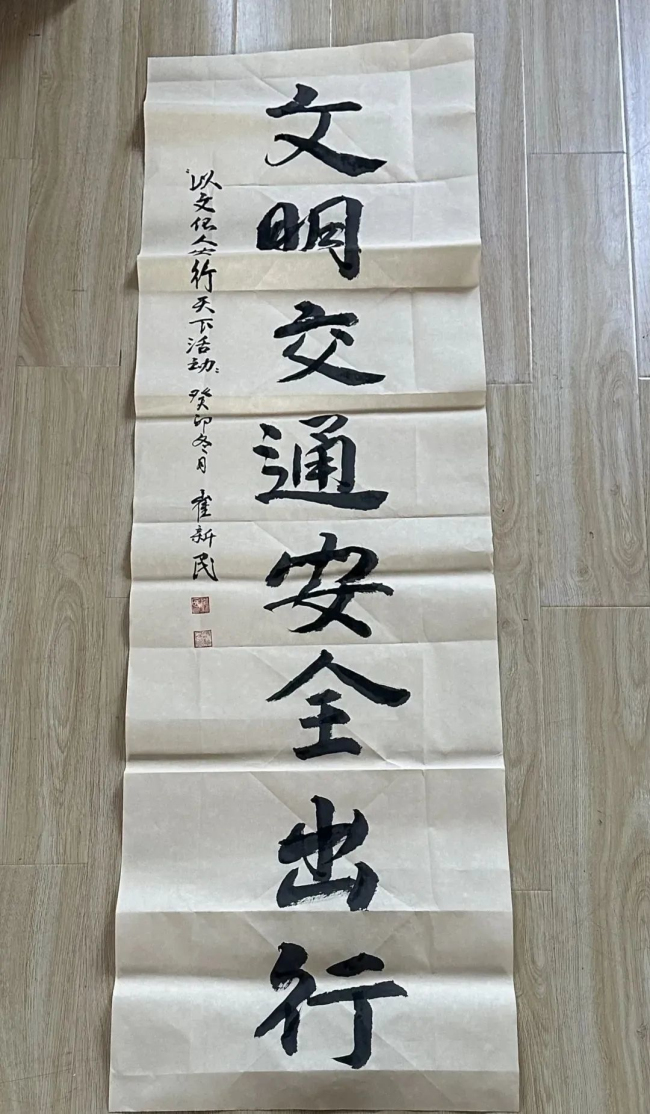 文明交通安全出行
以文化人安行天下活动 癸卯冬月 崔新民